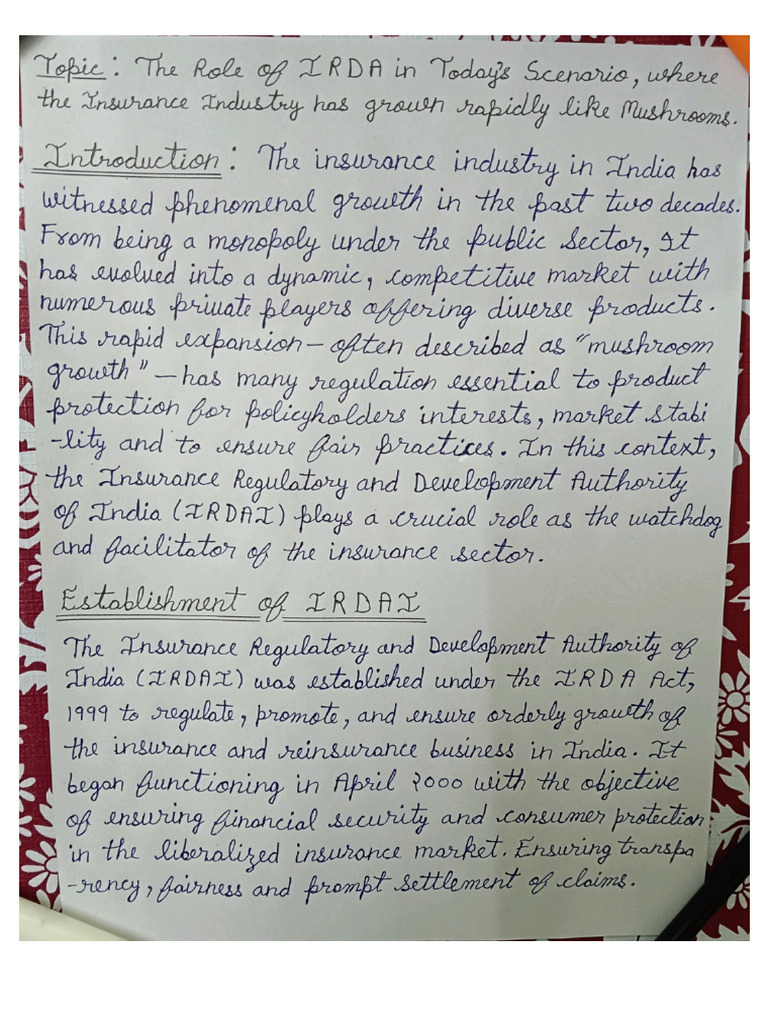 Topic: The Role of IRDA in Today's Scenario, where
the Insurance Industry has grown rapidly like Mushrooms.
Introduction: The insurance industry in India has
witnessed phenomenal growth in the past two decades.
From being a monopoly under the public sector, It
has evolved into a dynamic, competitive market with
numerous private players offering diverse products.
This rapid expansion – often described as "mushroom
growth" – has many regulation essential to product
protection for policyholders interests, market stabi
-lity and to ensure fair practices. In this context,
the Insurance Regulatory and Development Authority
of India (IRDAI) plays a crucial role as the watchdog
and facilitator of the insurance sector.
Establishment of IRDAI
The Insurance Regulatory and Development Authority of
India (IRDAI) was established under the IRDA Act,
1999 to regulate, promote, and ensure orderly growth of
the insurance and reinsurance business in India. It
began functioning in April 2000 with the objective
of ensuring financial security and consumer protection
in the liberalized insurance market. Ensuring transpa
-rency, fairness and prompt settlement of claims.